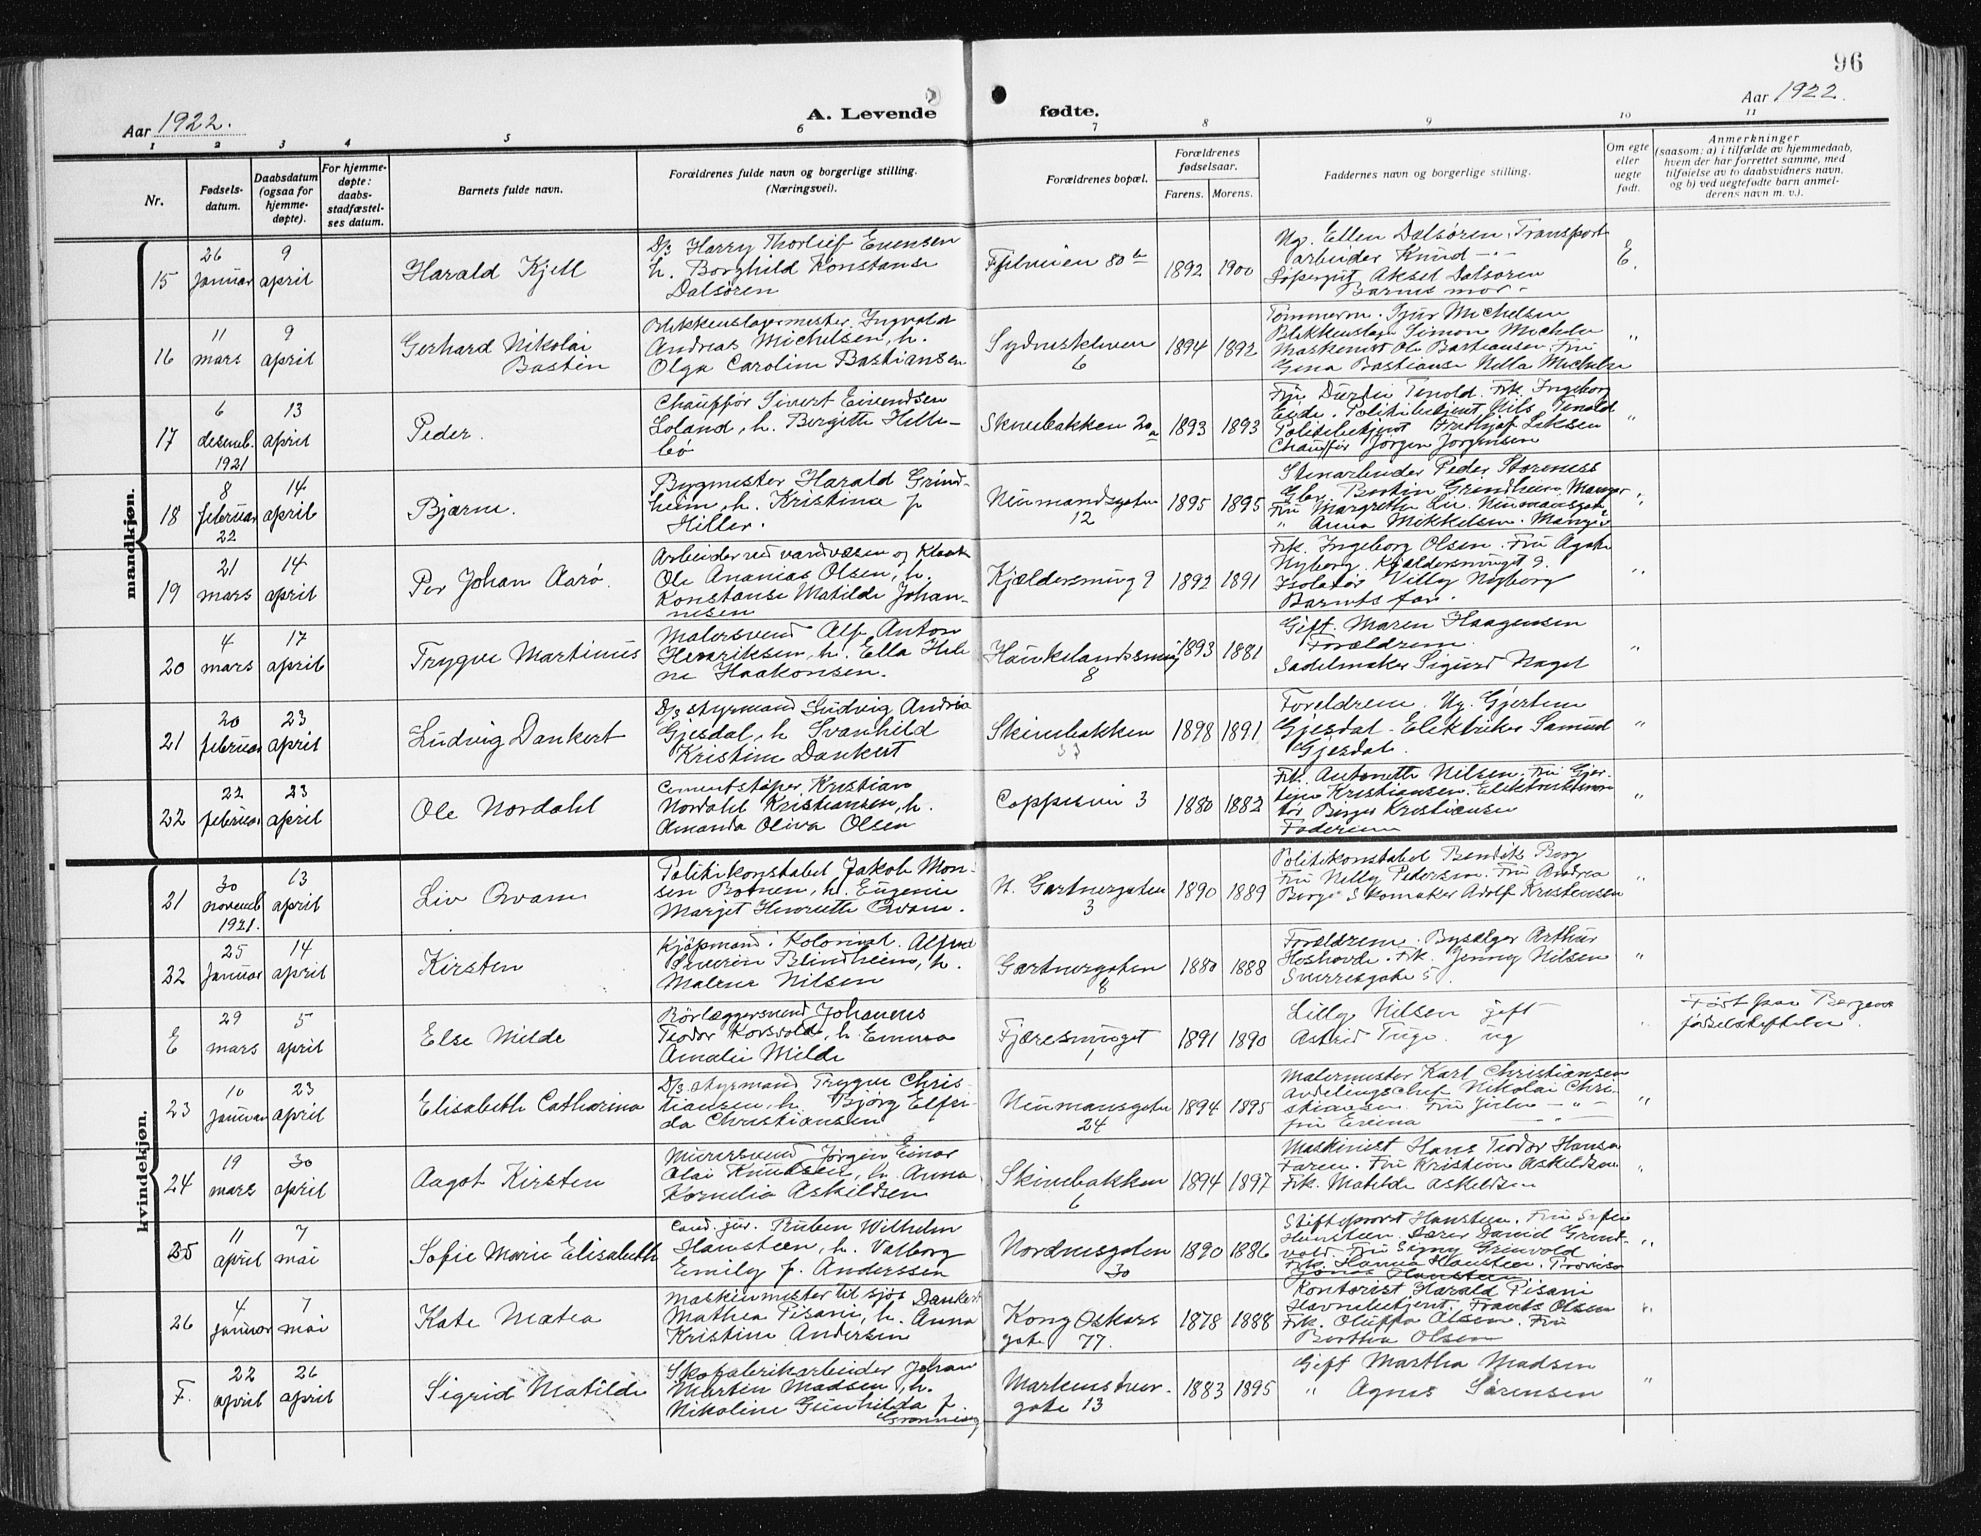 96
Aar 1922.
A. Levende fødte.
Aar 1922.
1 2 3 4 5 6 7 8 9 10 11
Nr.
Fødsels-
datum.
Daabsdatum
(ogsaa for
hjemme-
døpte).
For hjemme-
døpte:
daabs-
stadfæstel-
ses datum.
Barnets fulde navn.
Forældrenes fulde navn og borgerlige stilling.
(Næringsvei).
Forældrenes bopæl.
Forældrenes
fødselsaar.
Farens. Morens.
Faddernes navn og borgerlige stilling.
Om egte
eller
uegte
født.
Anmerkninger
(saasom: a) i tilfælde av hjemmedaab,
hvem der har forrettet samme, med
tilføielse av to daabsvidners navn,
og b) ved uegtefødte barn anmel-
derens navn m. v.).
mandkjøn.
15
26 januar
9 april
Harald Kjell
D/s Harry Thorleif Evensen
h. Borghild Konstanse
Dalsøren
80
1892 1900
Ug. Ellen Dalsøren. Transport-
arbeider Knud —"—
Løpergut Aksel Dalsøren
Barnets mor.
E.
16
11 mars
9 april
Gerhard Nikolai
Bastin
Blikkenslagermester Ingvald
Andreas Michelsen, h.
Olga Caroline Bastiansen
Sydneskleven
6
1894 1892
Tømmerm. Sjur Michelsen
Blikkenslager Simon Michelsen
Maskinist Ole Bastiansen. Fru
Gina Bastianse Nilla Michelsen
"
17
6 desemb. 1921
13 april
Peder.
Chauffør Sivert Eivendsen
Loland, h. Bergitte Hille-
bø
Skivebakken 20a
1893 1893
Fru Tenold. Frk. Ingeborg
Eide. Politibetjent Nils Tenold
Politibetjent Fridtjof
Chauffør Jørgen Jørgensen
"
18
8 februar 22
14 april
Bjarne.
Bygmester Harald Grind-
heim, h. Kristine f.
Hiller.
Neumandsgaten
12
1895 1895
Stenarbeider Peder Storeness
Gbr. Bastin Grindheim Manger
Fru Margrethe Lie. Neumansgate
" Anna Mikkelsen. Manger
"
19
21 mars
14 april
Per Johan Aarø.
Arbeider ved vandvæsen og Kloak
Ole Ananias Olsen, h.
Konstanse Matilde Johan-
nesen
Kjældersmug 9
1892 1891
Frk. Ingeborg Olsen. Fru Agate
Nyborg. Kjældersmuget 9.
Isolatør Villy Nyborg
Barnets far.
"
20
4 mars
17 april
Trygve Martinus
Malersvend Alf Anton
Henriksen, h. Ella Hele
ne Haakonsen.
Haukelandssmug
8
1893 1881
Gift. Maren Haagensen
Forældrene.
Sadelmaker Sigurd Nagel
"
21
20 februar
23 april
Ludvig Dankert
D/s styrmand Ludvig Andrea
Gjesdal, h. Svanhild
Kristine Dankert
Skivebakken
33
1898 1891
Foreldrene. Ug. Gjertine
Gjesdal. Elektriker Samuel
Gjesdal.
"
22
22 februar
23 april
Ole Nordahl
Cementstøper Kristian
Nordahl Kristiansen, h.
Amanda Oliva Olsen
Coppesvei 3
1880 1882
Frk. Antonette Nilsen. Fru Gjer-
tine Kristiansen. Elektromon
tør Birger Kristiansen
Faderen
"
kvindekjøn.
21
30 novemb. 1921.
13 april
Liv Qvam
Politikonstabel Jakob Mon-
sen Botnen, h. Eugenie
Marget Henriette Qvam.
N. Gartnergaten
3
1890 1889
Politikonstabel Bendik Berg
Fru Nelly Pedersen. Fru Andrea
Berge Skomaker Adolf Kristensen
"
22
25 januar
14 april
Kirsten
Kjøpmand i Kolonial. Alfred
Severin Blindheim, h.
Malene Nilsen
Gartnergaten
8
1880 1888
Forældrene. Bysælger Arthur
Heshovde. Frk. Jenny Nilsen
Sverresgate 5.
"
E
29 mars
5 april
Else Milde
Rørlæggersvend Johannes
Teodor Korsvold, h. Emma
Amalie Milde
Fjæresmuget
1
1891 1890
Lilly Nilsen gift
Astrid ug
"
Født paa Bergens
fødselsstiftelse.
23
10 januar
23 april
Elisabeth Catharina
D/s styrmand Trygve Chris-
tiansen, h. Bjørg Elfri
da Christiansen
Neumansgaten
24
1894 1895
Malermester Karl Christiansen
Avdelingschef Nikolai Chri-
stiansen. Fru —"—
fru —"—
"
24
19 mars
30 april
Aagot Kirsten
Murersvend Jørgen Einar
Olai Knudsen, h. Anna
Kornelia Askildsen
Skivebakken
6
1894 1897
Maskinist Hans Teodor Hansen
Faren. Fru Kristine Askildsen
Frk. Matilde Askildsen
"
25
11 april
7 mai
Sofie Marie Elisabeth
Cand. jur. Ruben Wilhelm
Hansteen, h. Valborg
Emily f. Anderssen
Nordnesgaten
30
1890 1886
Stiftsprovst Hansteen. Fru Sofie
Hansteen. Lærer David Grim-
vold. Fru Signy Grimvold
Frk. Hanna Hansteen.
Jonas Hansteen
"
26
4 januar
7 mai
Kate Matea
Maskinmester til sjøs Dankert
Mathea Pisani, h. Anna
Kristine Andersen
Kong Oskars
gate 77.
1878 1888
Kontorist Harald Pisani
Havnebetjent Frants Olsen
Frk. Oluffa Olsen. Fru
Berthea Olsen
"
F.
22 april
26 april
Sigrid Matilde
Skofabrikarbeider Johan
Martin Madsen, h.
Nikoline Gunhilda f.
Grønning
Markens
gate 13
1883 1895
Gift Martha Madsen
" Agnes Sørensen
"